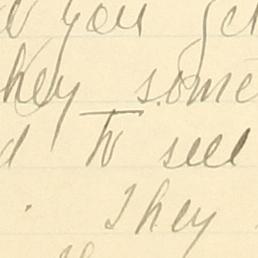 you
hey some
d to sell
. They